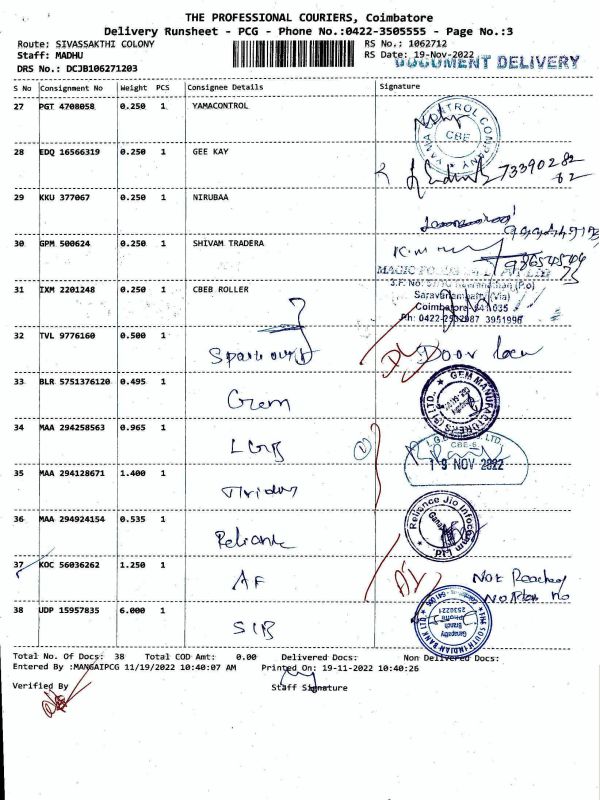 THE PROFESSIONAL COURIERS, Coimbatore
Delivery Runsheet - PCG - Phone No.:0422-3505555 - Page No.:3
Route: SIVASSAKTHI COLONY
RS No.: 1062712
Staff: MADHU
RS Date: 19-Nov-2022
DOCUMENT DELIVERY
DRS No.: DCJB106271203
S No Consignment No Weight PCS Consignee Details Signature
27 PGT 4708058 0.250 1 YAMACONTROL
YAMA CONTROL COMPANY CBE
28 EDQ 16566319 0.250 1 GEE KAY
73390282
82
29 KKU 377067 0.250 1 NIRUBAA
30 GPM 500624 0.250 1 SHIVAM TRADERA
31 IXM 2201248 0.250 1 CBEB ROLLER
Saravanampatty (Via)
Coimbatore 641035
Ph: 0422-2502987 3951996
32 TVL 9776160 0.500 1 Door lock
33 BLR 5751376120 0.495 1 Gem
GEM MANUFACTURERS (P) LTD.
34 MAA 294258563 0.965 1 LGB
CBE-6
19 NOV 2022
35 MAA 294128671 1.400 1
36 MAA 294924154 0.535 1 Reliance
Reliance Jio Infocomm Ltd.
37 KOC 56036262 1.250 1 AF
Not Reachey
No Plan No
38 UDP 15957835 6.000 1 SIB
SOUTH INDIAN BANK LTD
Ganapathy
Branch
Phone
2530221
Total No. Of Docs: 38 Total COD Amt: 0.00 Delivered Docs: Non Delivered Docs:
Entered By :MANGAIPCG 11/19/2022 10:40:07 AM Printed On: 19-11-2022 10:40:26
Verified By
Staff Signature